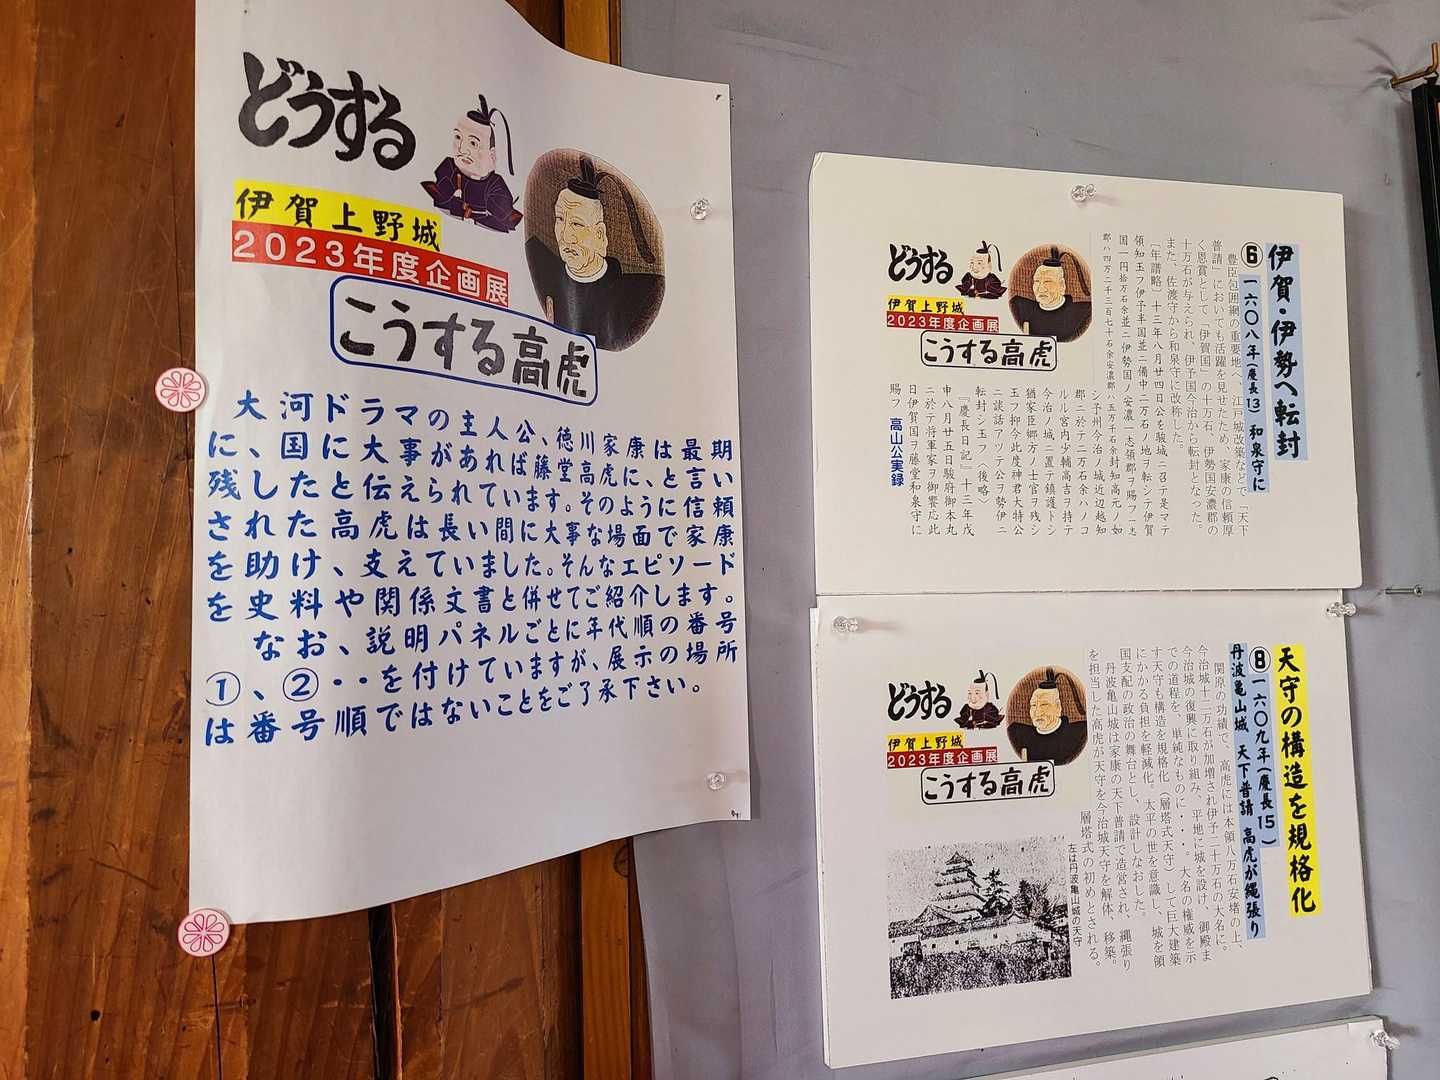 どうする
伊賀上野城
2023年度企画展
こうする高虎
大河ドラマの主人公、徳川家康は最期
に、国に大事があれば藤堂高虎に、と言い
残したと伝えられています。そのように信頼
された高虎は長い間に大事な場面で家康
を助け、支えていました。そんなエピソード
を史料や関係文書と併せてご紹介します。
なお、説明パネルごとに年代順の番号
①、②・・を付けていますが、展示の場所
は番号順ではないことをご了承下さい。
伊賀・伊勢へ転封
⑥一六〇八年(慶長13) 和泉守に
豊臣包囲網の重要地へ、江戸城改築などで「天下
普請」においても活躍を見せたため、家康の信頼厚
く恩賞として「伊賀国」の十万石、伊勢国安濃郡の
十万石が与えられ、伊予国今治から転封となった。
また、佐渡守から和泉守に改称した。
〔年譜略〕十三年八月廿四日公を駿城ニ召テ是マテ
領知玉フ伊予半国並ニ備中二万石ノ地ヲ転シテ伊賀
国一円拾万石余並ニ伊勢国ノ安濃一志領郡ヲ賜フ
どうする
伊賀上野城
2023年度企画展
こうする高虎
シ予州今治ノ城近辺越知
郡ニ於テ二万石余ハノコ
ルル宮内少輔高吉ヲ持テ
今治ノ城ニ置テ鎮護トシ
猶家臣郷方ノ士官ヲ残シ
玉フ抑今此度神君大特公
ニ談話アツテ公ヲ勢伊ニ
転封シ玉フ（後略）
『慶長日記』十三年戊
申八月廿五日駿府御本丸
ニ於テ将軍家ヲ御饗応此
日伊賀国ヲ藤堂和泉守ニ
賜フ 高山公実録
天守の構造を規格化
⑧一六〇九年(慶長15)
丹波亀山城 天下普請 高虎が縄張り
関原の功績で、高虎には本領八万石安堵の上、
今治城十二万石が加増され伊予二十万石の大名に。
今治城の復興に取り組み、平地に城を設け、御殿ま
での道程を、単純なものに・・・。大名の権威を示
す天守も構造を規格化（層塔式天守）して巨大建築
にかかる負担を軽減化。太平の世を意識し、城を領
国支配の政治の舞台とし、設計しなおした。
丹波亀山城は家康の天下普請で造営され、縄張り
を担当した高虎が天守を今治城天守を解体、移築。
層塔式の初めとされる。
どうする
伊賀上野城
2023年度企画展
こうする高虎
左は丹波亀山城の天守